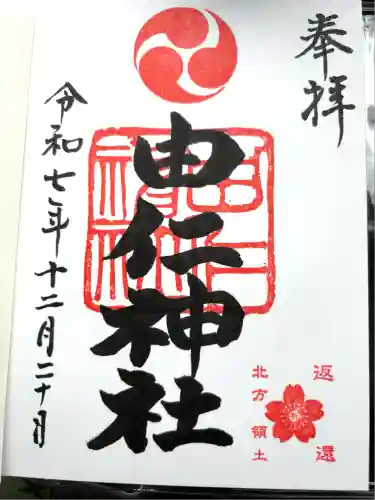 奉拝
由仁神社
由仁神社
返還
北方領土
令和七年十二月二十日